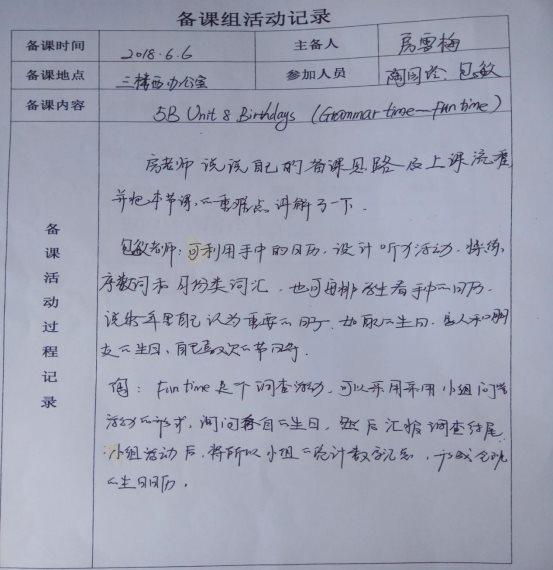 备课组活动记录
备课时间 2018.6.6 主备人 房雪梅
备课地点 三楼西办公室 参加人员 陶国玲、包敏
备课内容 5B Unit 8 Birthdays (Grammar time—fun time)
备课活动过程记录
房老师说说自己的备课思路及上课流程
并把本节课的重难点讲解了一下.
包敏老师:可利用手中的日历,设计听力活动,
序数词和月份类词汇.也可安排学生看手中的日历.
说说一年里自己认为重要的日子,如家人的生日,
友的生日,自己喜欢的节日等.
陶:Fun time是个调查活动,可以采用采用小组问答
活动的形式,询问各自的生日,然后汇报调查结果.
小组活动后,将所以小组的统计数字汇总,
的生日日历.